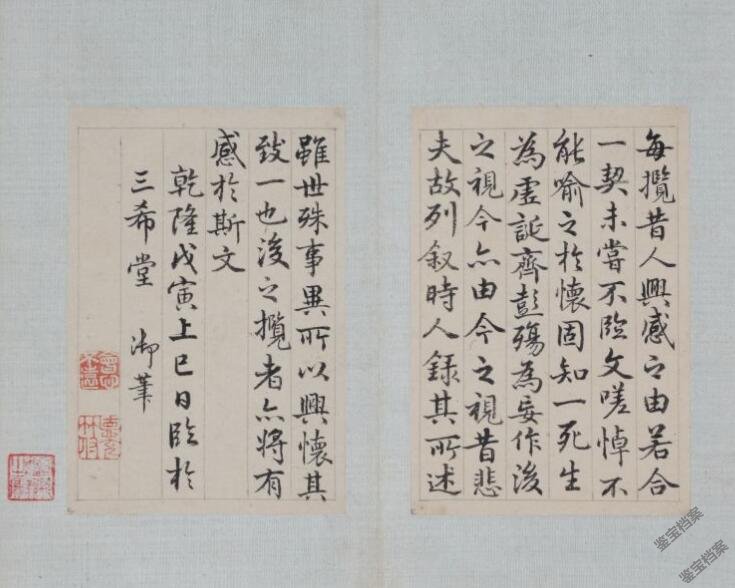 每攬昔人興感之由若合
一契未嘗不臨文嗟悼不
能喻之於懷固知一死生
為虛誕齊彭殤為妄作後
之視今亦由今之視昔悲
夫故列叙時人錄其所述
雖世殊事異所以興懷其
致一也後之攬者亦將有
感於斯文
乾隆戊寅上巳日臨於
三希堂 御筆
會心不遠
德充符
鉴宝档案
鉴宝档案